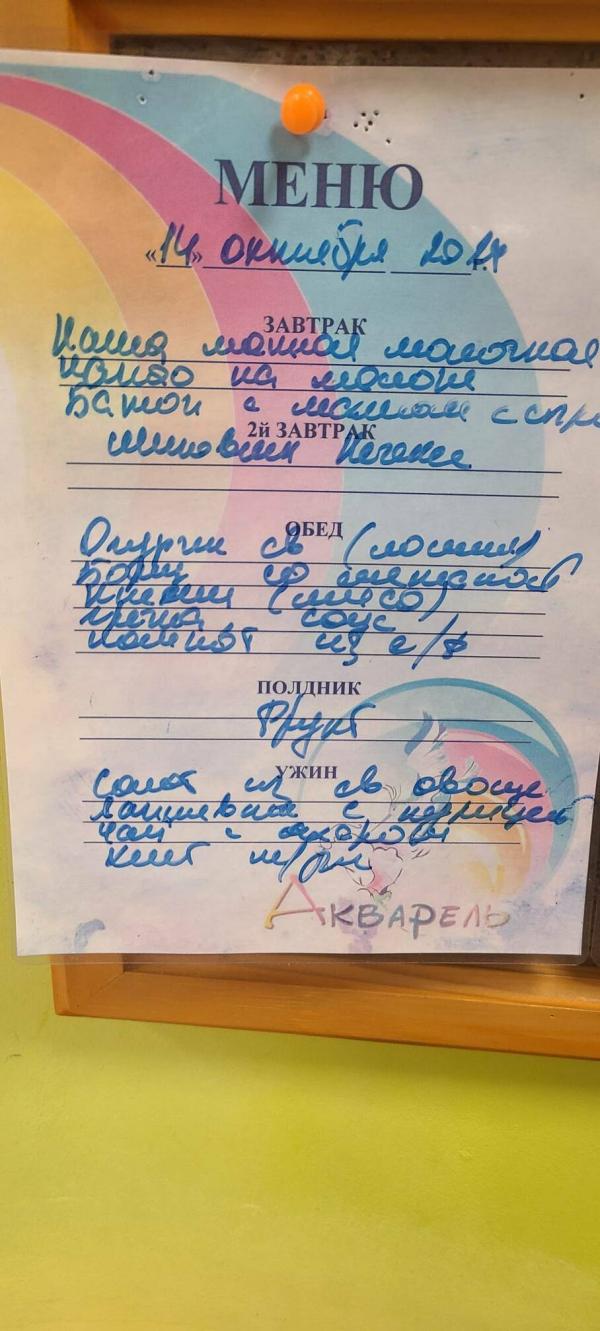 МЕНЮ
«14» октября 2024
ЗАВТРАК
Каша манная молочная
Какао на молоке
Батон с маслом с сыро
2й ЗАВТРАК
Шиповник Печенье
ОБЕД
Огурчик св (ломтик)
Борщ со сметаной
(мясо)
гречка, соус
компот из с/ф
ПОЛДНИК
Фрукт
УЖИН
Салат из св овоще
с курицей
Чай с сахаром
хлеб
АКВАРЕЛЬ